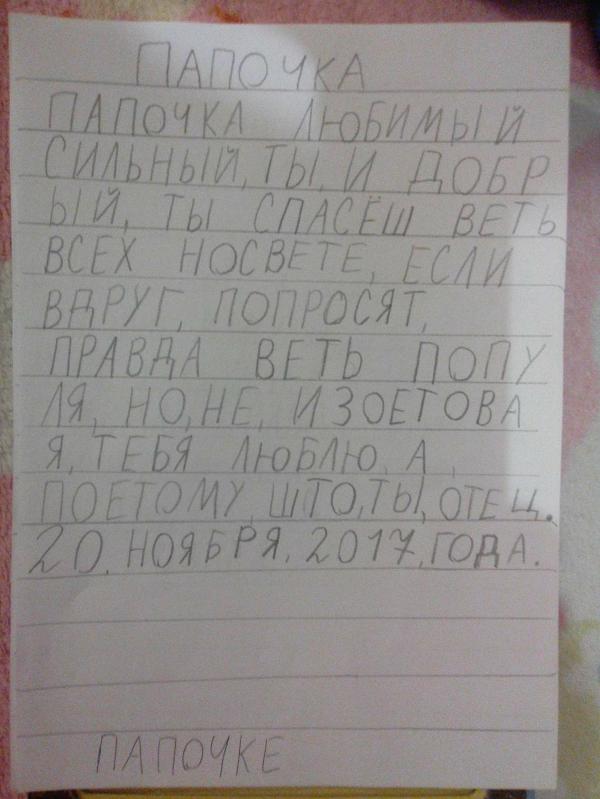 ПАПОЧКА
ПАПОЧКА ЛЮБИМЫЙ
СИЛЬНЫЙ, ТЫ, И ДОБР
ЫЙ, ТЫ СПАСЁШ ВЕТЬ
ВСЕХ НОСВЕТЕ, ЕСЛИ
ВДРУГ, ПОПРОСЯТ,
ПРАВДА ВЕТЬ ПОПУ
ЛЯ, НО, НЕ, ИЗОЕТОВА
Я, ТЕБЯ ЛЮБЛЮ, А,
ПОЕТОМУ, ШТО, ТЫ, ОТЕЦ.
20, НОЯБРЯ, 2017, ГОДА.
ПАПОЧКЕ